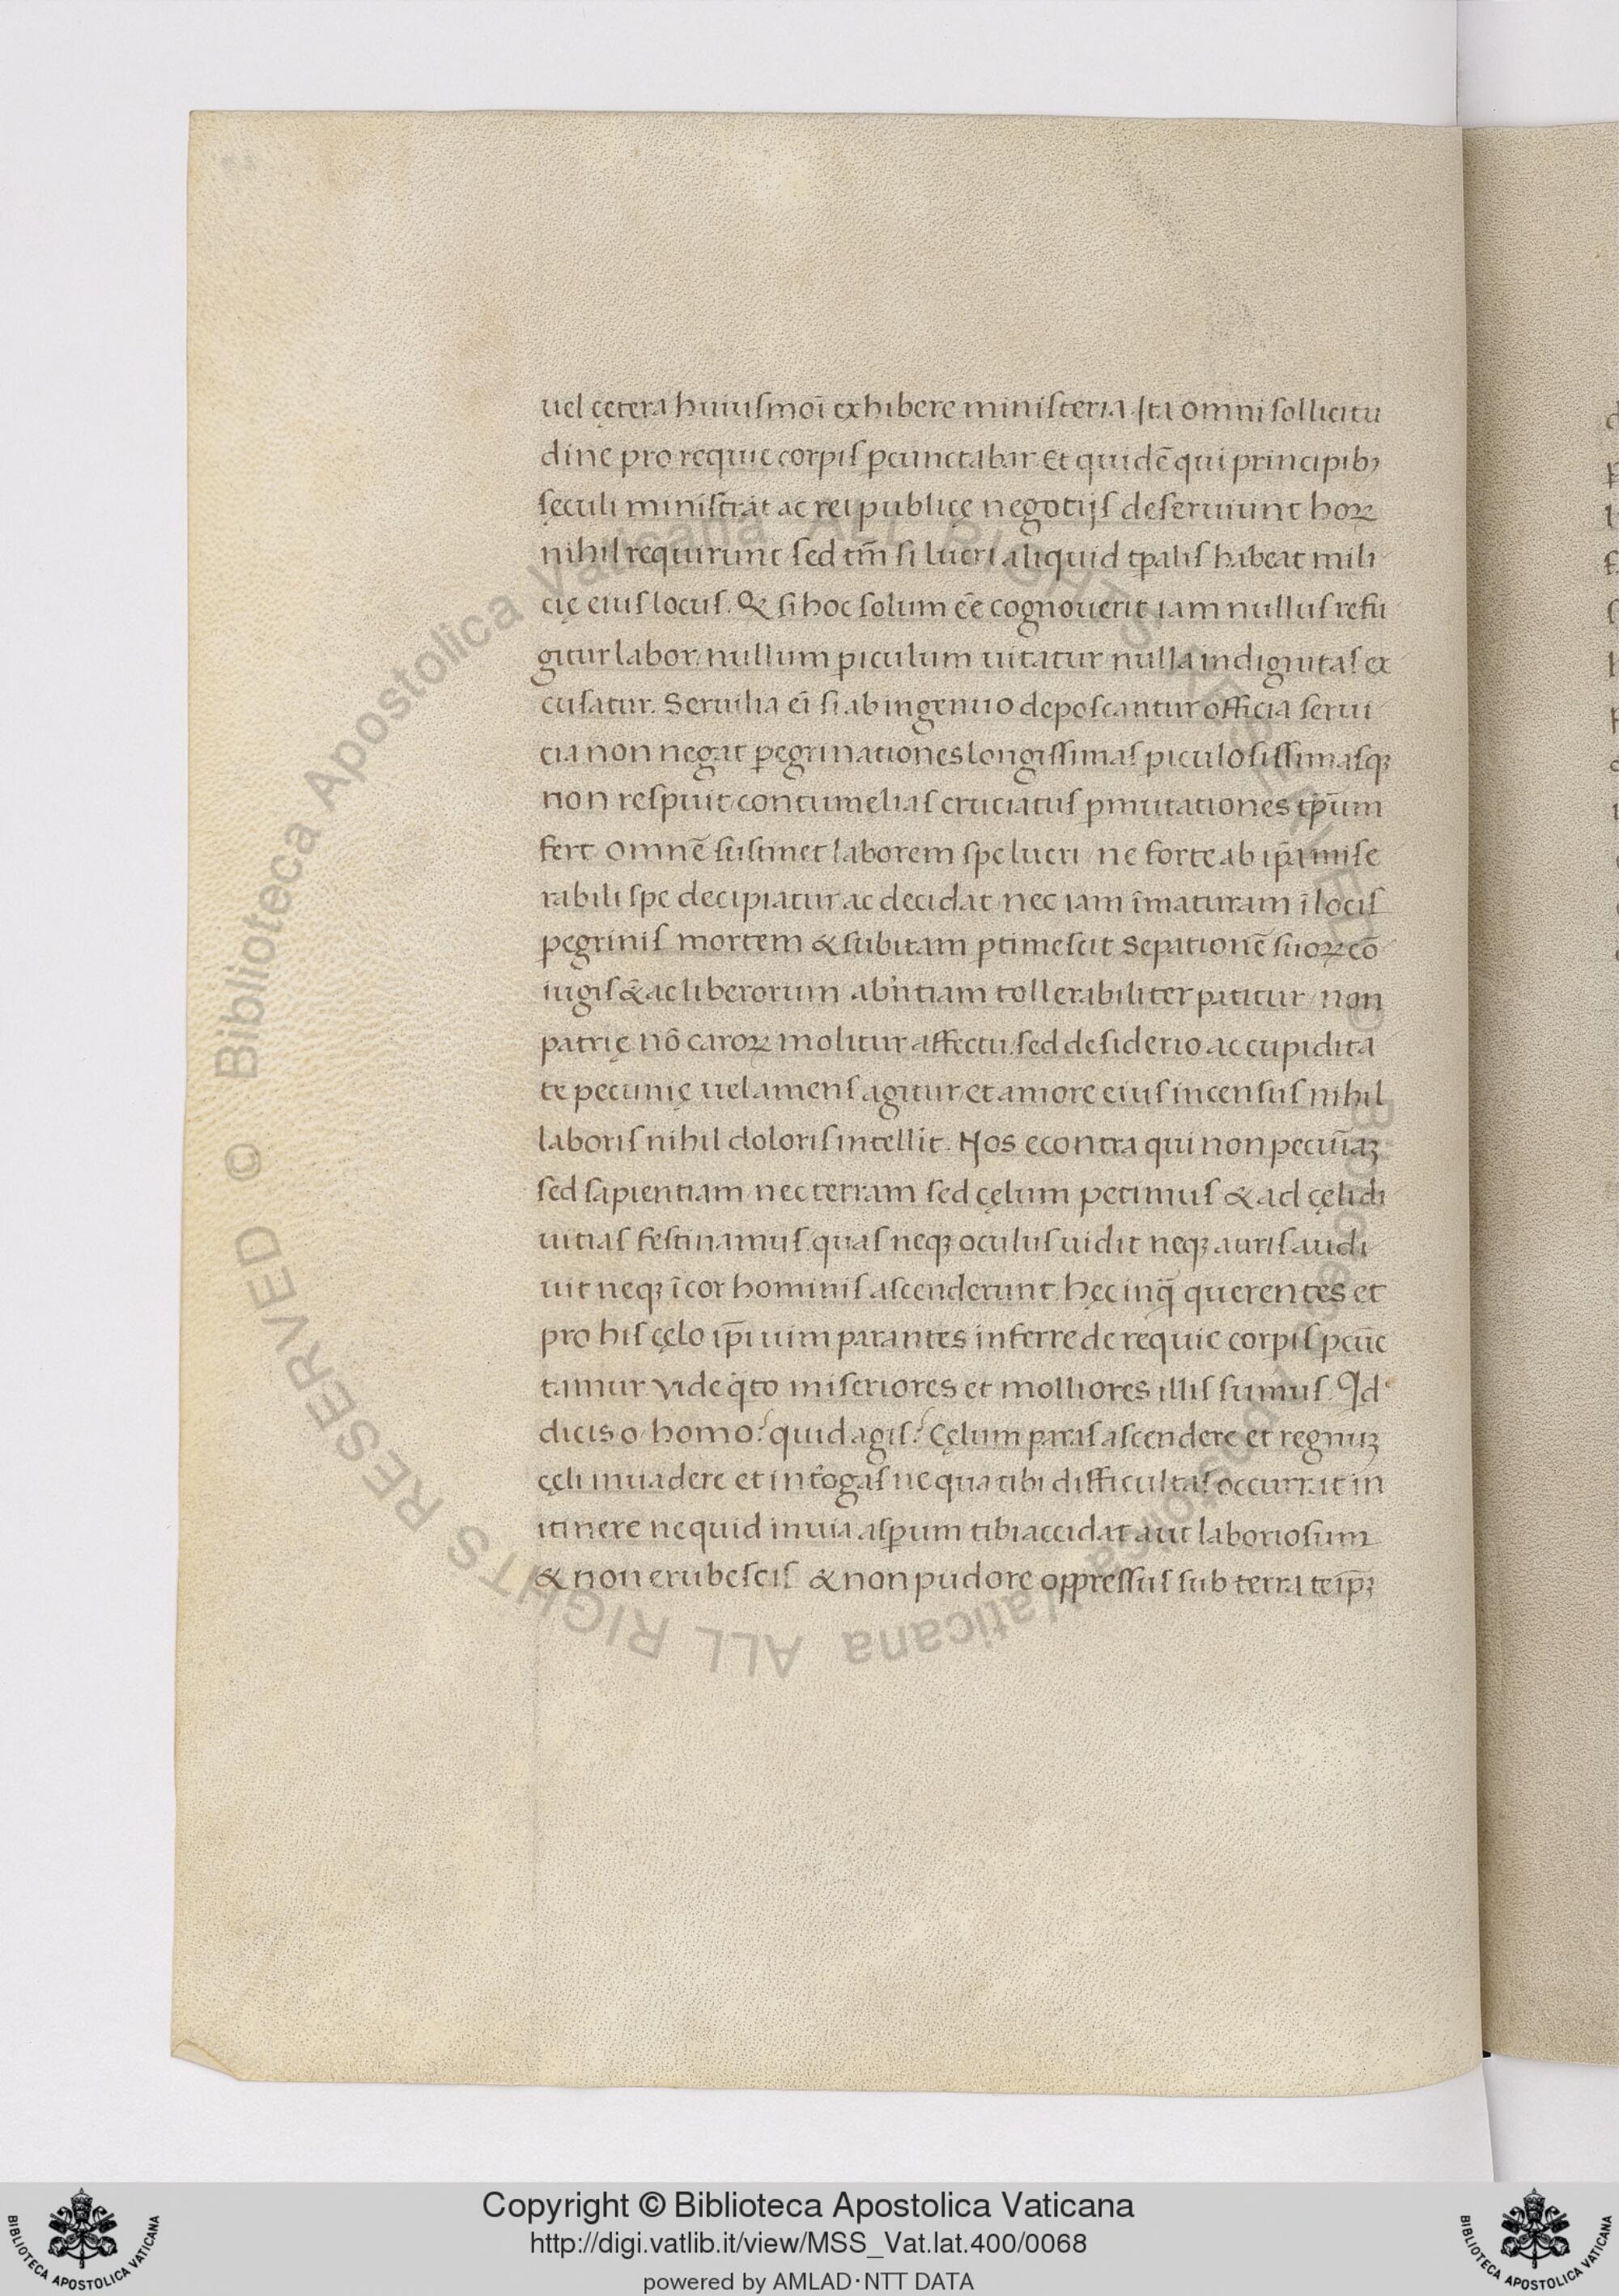 uel cętera huiuſmoī exhibere miniſteria. Ita omni ſollicitu
dine pro requie corpiſ p̱cunctabar. Et quidē qui principibꝫ
ſęculi miniſtrāt ac rei publicę negotijſ deſeruiunt hoꝝ
nihil requirunt ſed tm̄ ſi lucri aliquid tp̄aliſ habeat mili
cię eiuſ locuſ. Q ſi hoc ſolum eē cognouerit iam nulluſ refu
gitur labor/ nullum ꝑiculum uitatur nulla indignitaſ ex
cuſatur. Seruilia eī ſi ab ingenuo depoſcantur officia ſerui
cia non negat ꝑegrinationes longiſſimaſ ꝑiculoſiſſimaſqꝫ
non reſpuit/ contumeliaſ cruciatuſ ꝑmutationes tp̄um
fert omnē ſuſtinet laborem ſpe lucri/ ne forte ab ip̄a miſe
rabili ſpe decipiatur ac decidat/ nec iam īmaturam ī lociſ
ꝑegriniſ mortem & ſubitam ꝑtimeſcit Seꝑationē ſuoꝝ cō
iugiſ & ac liberorum abn̄tiam tollerabiliter patitur/ non
patrię nō caroꝝ molitur affectu/ ſed deſiderio ac cupidita
te pecunię uel amenſ agitur/ et amore eiuſ incenſuſ nihil
laboriſ nihil doloriſ intelliīt. Nos econtra qui non pecun̄iaꝫ
ſed ſapientiam nec terram ſed cęlum petimuſ & ad cęli di
uitiaſ feſtinamuſ quaſ neqꝫ oculuſ uidit neqꝫ auriſ audi
uit neqꝫ ī cor hominiſ aſcenderunt. hęc inqͣ̄ querentes et
pro hiſ cęlo ip̄i uim parantes inferre de requie corpiſ ꝑcūc
tamur Vide qͣ̄to miſeriores et molliores illiſ ſumuſ. Qd
dicis o homo? quid agiſ? Cęlum paraſ aſcendere et regnuꝫ
cęli inuadere et int̄ogaſ ne qua tibi difficultaſ occurrat in
itinere ne quid in uia aſꝑum tibi accidat aut laborioſum
& non erubeſciſ & non pudore oppreſſuſ ſub terra teip̄ꝫ
Copyright © Biblioteca Apostolica Vaticana
http://digi.vatlib.it/view/MSS_Vat.lat.400/0068
powered by AMLAD·NTT DATA